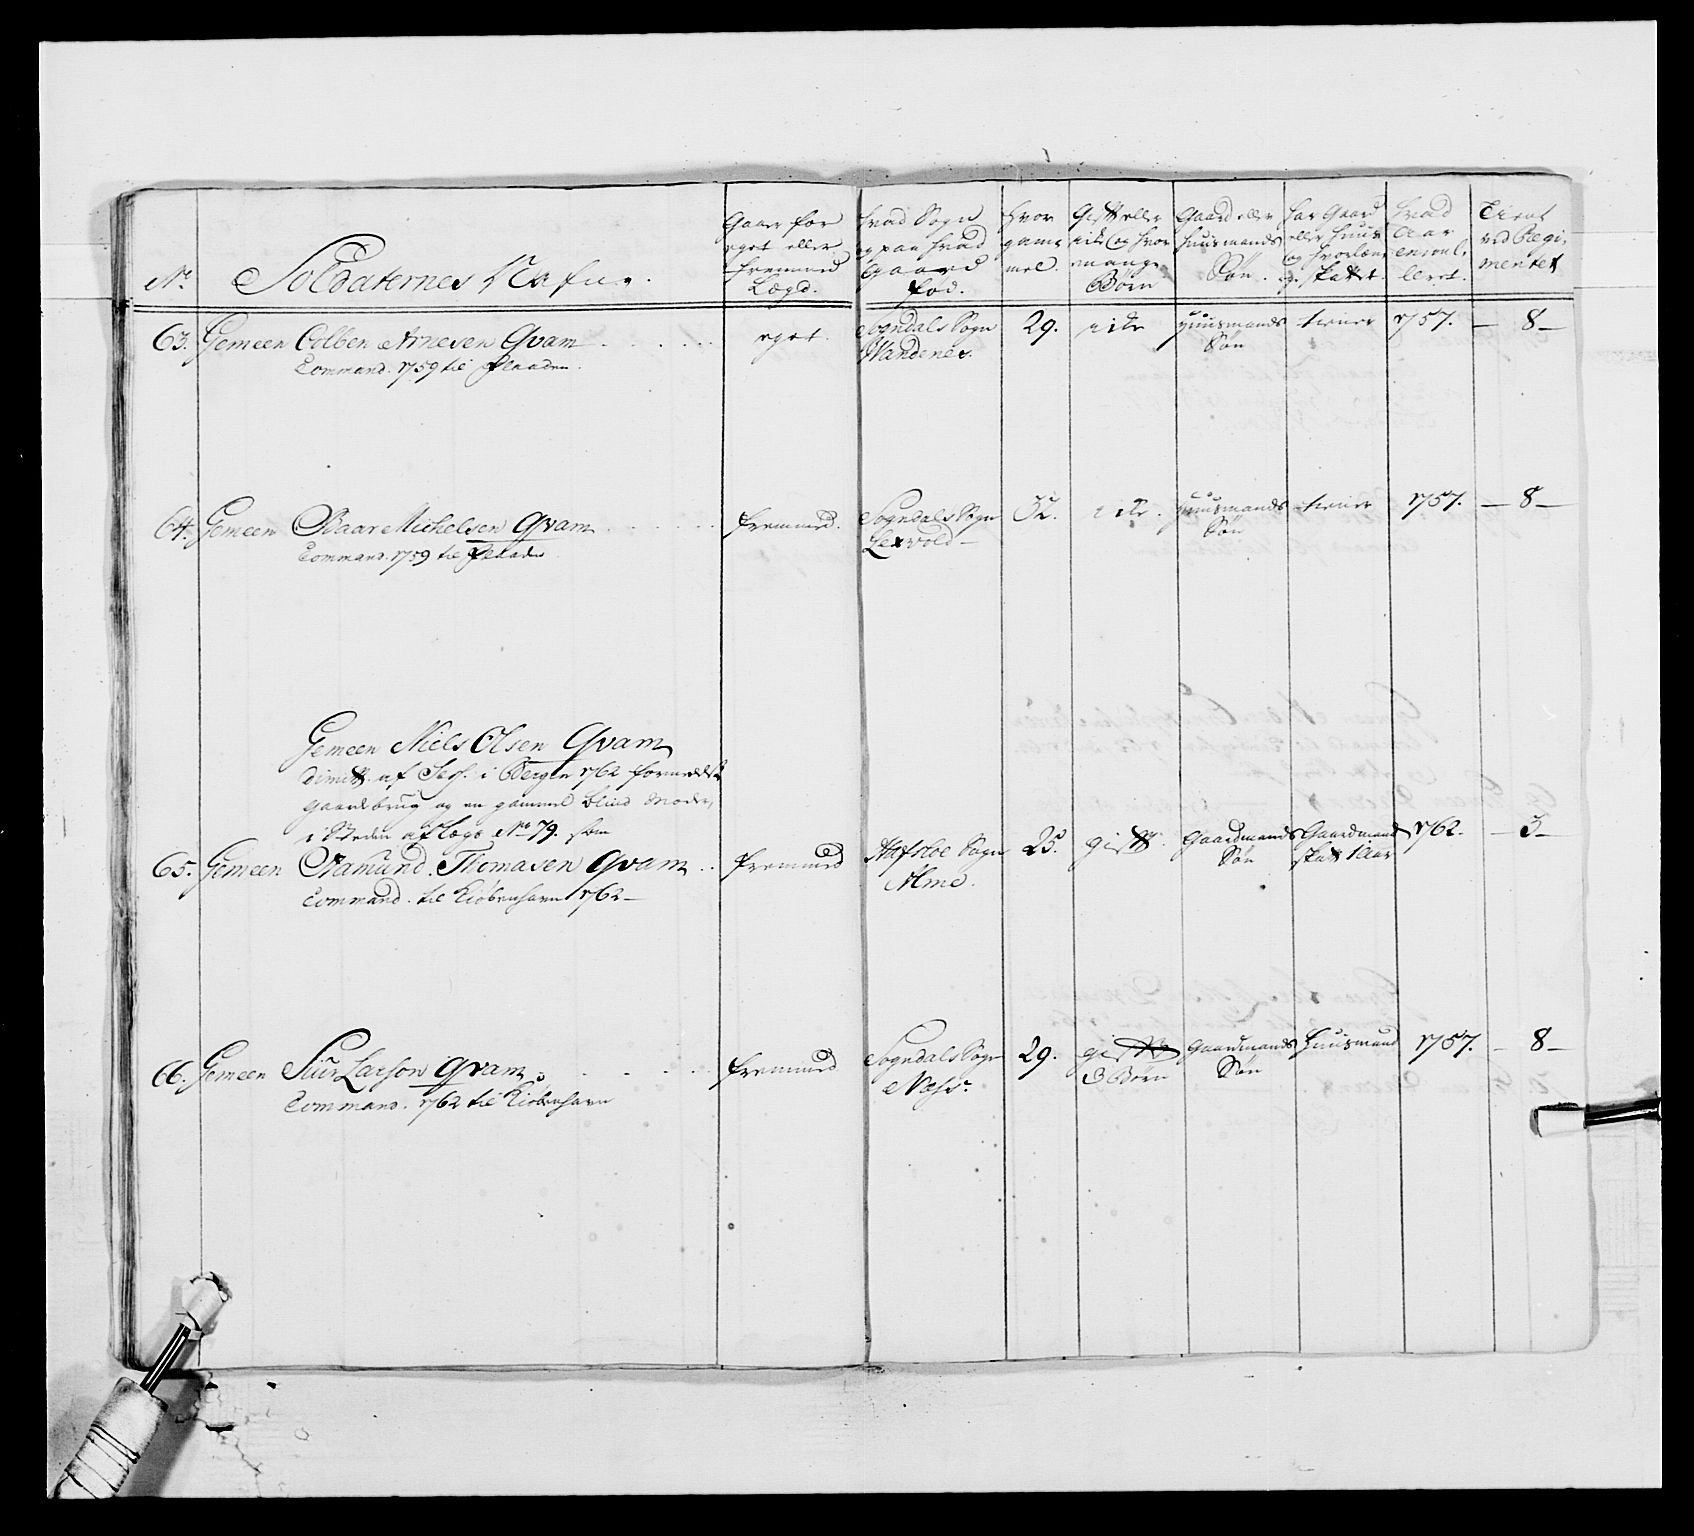 No. Soldaternes Nafne.
Gaaer for eget eller fremmed Lægd.
hvad Sogn og paa hvad Gaard fød.
hvor gammel.
Gift eller ikke og hvor mange Børn
Gaard eller Huusmands Søn.
har Gaard eller Huus og
Skattet.
hvad Aar enroulleret.
Tient ved Regimentet
63. Gemeen Colben Arnesen Qvam eget. Sogndals Sogn 29. ikke Huusmands tiener 1757. — 8 —
Command. 1759 til Flaaden. Søn
64. Gemeen Baar Michelsen Qvam fremmed. Sogndals Sogn 32. ikke. Huusmands tiener 1757. — 8 —
Command. 1759 til Flaaden Søn
Gemeen Niels Olsen Qvam
Dimitt. af Sess. i Bergen 1762 formedelst
gaardbrug og en gammel blind Moder,
i Steden af lægs No. 79. som
65. Gemeen Aamund Thomasen Qvam fremmed Hafsloe Sogn 25. gift. Gaardmands Gaardmand 1762. — 5 —
Alme. Søn skatt 1 Aar
Command. til Kiøbenhavn 1762 —
66. Gemeen Siur Larson Qvam fremmed Sogndals Sogn 29. gift Gaardmands Huusmand 1757. — 8 —
Command. 1762 til Kiøbenhavn 3 Børn Søn